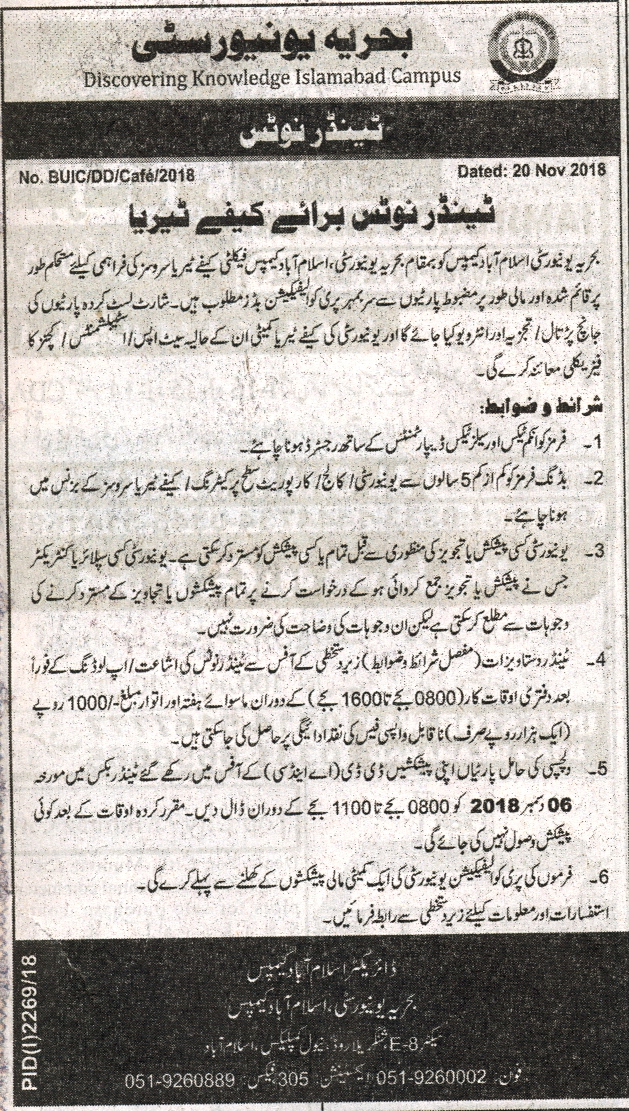 بحریہ یونیورسٹی
Discovering Knowledge Islamabad Campus
ٹینڈر نوٹس
No. BUIC/DD/Café/2018
Dated: 20 Nov 2018
ٹینڈر نوٹس برائے کیفے ٹیریا
بحریہ یونیورسٹی اسلام آباد کیمپس کو بمقام بحریہ یونیورسٹی، اسلام آباد کیمپس فیکلٹی کیفے ٹیریا سروسز کی فراہمی کیلئے مستحکم طور
پر قائم شدہ اور مالی طور پر مضبوط پارٹیوں سے سربمہر پری کوالیفکیشن بڈز مطلوب ہیں۔ شارٹ لسٹ کردہ پارٹیوں کی
جانچ پڑتال / تجزیہ اور انٹرویو کیا جائے گا اور یونیورسٹی کی کیفے ٹیریا کمیٹی ان کے حالیہ سیٹ اپس / اسٹیبلشمنٹس / کچنز کا
فیزیکلی معائنہ کرے گی۔
شرائط و ضوابط:
1۔ فرمز کو انکم ٹیکس اور سیلز ٹیکس ڈیپارٹمنٹس کے ساتھ رجسٹرڈ ہونا چاہئے۔
2۔ بڈنگ فرمز کو کم از کم 5 سالوں سے یونیورسٹی / کالج / کارپوریٹ سطح پر کیٹرنگ / کیفے ٹیریا سروسز کے بزنس میں
ہونا چاہئے۔
3۔ یونیورسٹی کسی پیشکش یا تجویز کی منظوری سے قبل تمام یا کسی پیشکش کو مسترد کر سکتی ہے۔ یونیورسٹی کسی سپلائر یا کنٹریکٹر
جس نے پیشکش یا تجویز جمع کروائی ہو کے درخواست کرنے پر تمام پیشکشوں یا تجاویز کے مسترد کرنے کی
وجوہات سے مطلع کر سکتی ہے لیکن ان وجوہات کی وضاحت کی ضرورت نہیں۔
4۔ ٹینڈر دستاویزات (مفصل شرائط و ضوابط) زیر دستخطی کے آفس سے ٹینڈر نوٹس کی اشاعت / اپ لوڈنگ کے فوراً
بعد دفتری اوقات کار (0800 بجے تا 1600 بجے) کے دوران ماسوائے ہفتہ اور اتوار مبلغ -/1000 روپے
(ایک ہزار روپے صرف) ناقابل واپسی فیس کی نقد ادائیگی پر حاصل کی جا سکتی ہیں۔
5۔ دلچسپی کی حامل پارٹیاں اپنی پیشکشیں ڈی ڈی (اے اینڈ سی) کے آفس میں رکھے گئے ٹینڈر بکس میں مورخہ
06 دسمبر 2018 کو 0800 بجے تا 1100 بجے کے دوران ڈال دیں۔ مقرر کردہ اوقات کے بعد کوئی
پیشکش وصول نہیں کی جائے گی۔
6۔ فرموں کی پری کوالیفکیشن یونیورسٹی کی ایک کمیٹی مالی پیشکشوں کے کھلنے سے پہلے کرے گی۔
استفسارات اور معلومات کیلئے زیر دستخطی سے رابطہ فرمائیں۔
ڈائریکٹر اسلام آباد کیمپس
بحریہ یونیورسٹی، اسلام آباد کیمپس
سیکٹر E-8، شنگریلا روڈ، نیول کمپلیکس، اسلام آباد
فون: 051-9260002 ایکسٹینشن: 305 فیکس: 051-9260889
PID(I)2269/18